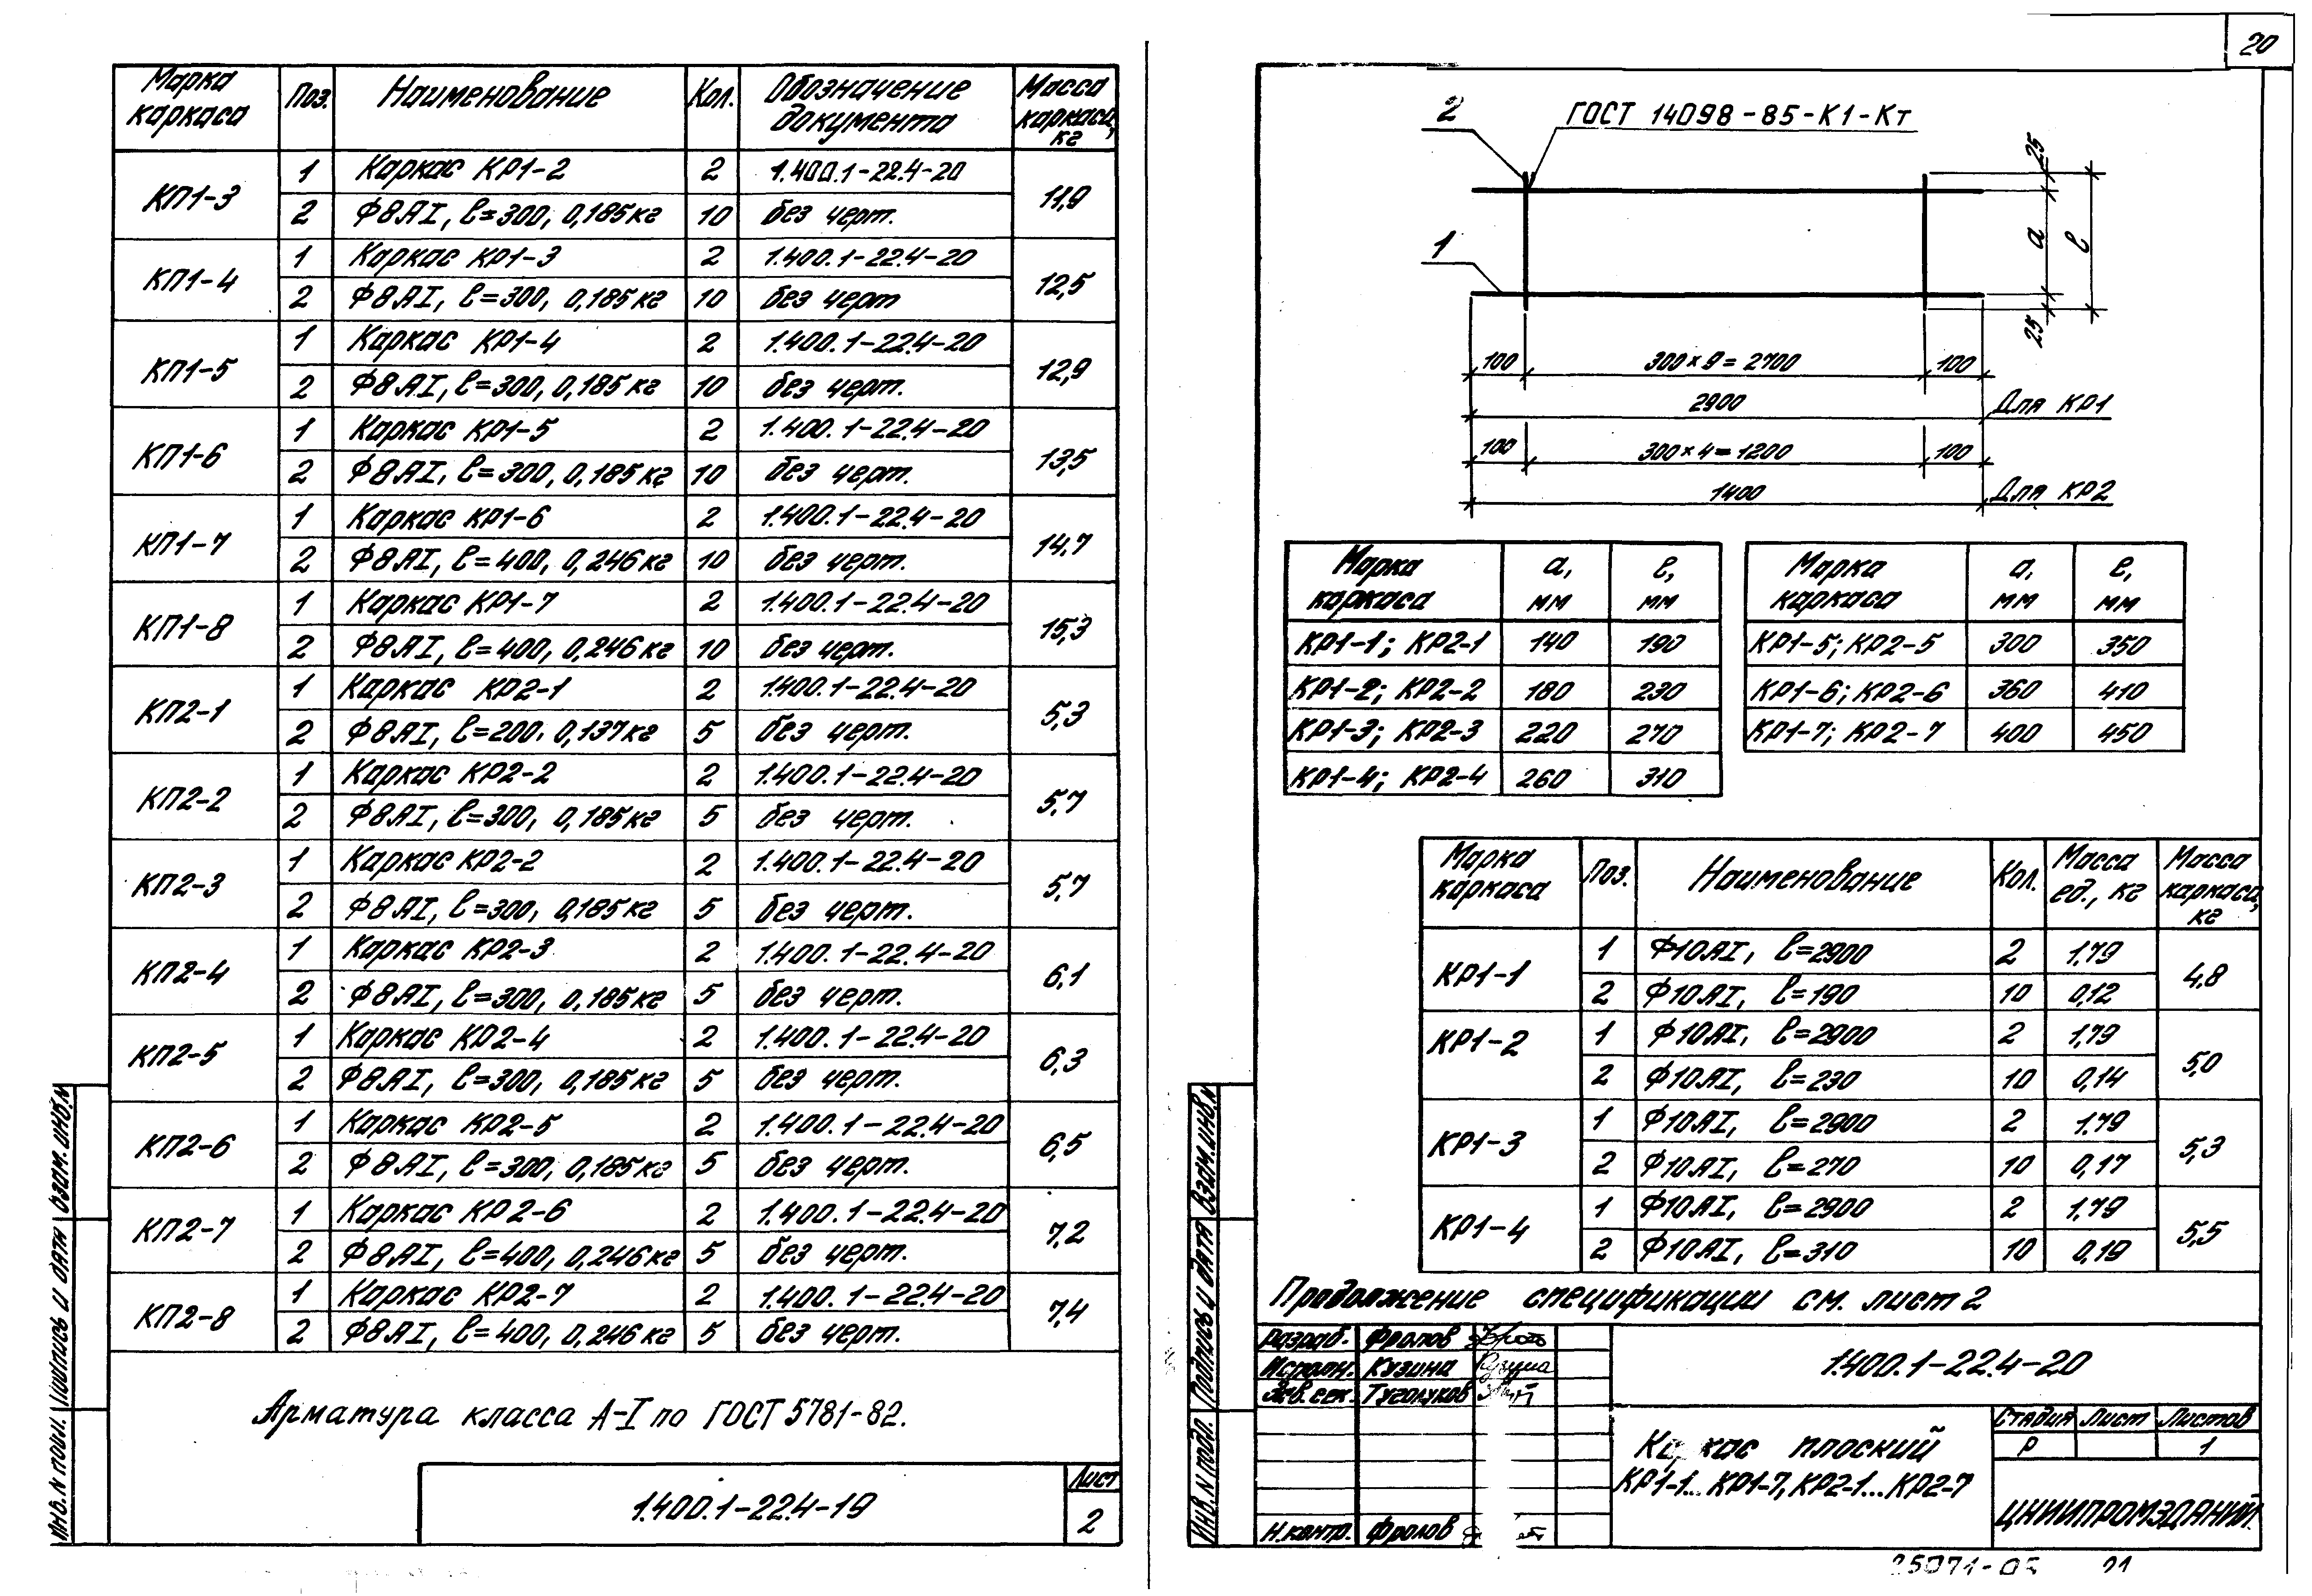 Марка каркаса | Поз. | Наименование | Кол. | Обозначение документа | Масса каркаса, кг
КП1-3 | 1 | Каркас КР1-2 | 2 | 1.400.1-22.4-20 | 11,9
2 | Ф8АI, ℓ=300, 0,185кг | 10 | без черт.
КП1-4 | 1 | Каркас КР1-3 | 2 | 1.400.1-22.4-20 | 12,5
2 | Ф8АI, ℓ=300, 0,185кг | 10 | без черт
КП1-5 | 1 | Каркас КР1-4 | 2 | 1.400.1-22.4-20 | 12,9
2 | Ф8АI, ℓ=300, 0,185кг | 10 | без черт.
КП1-6 | 1 | Каркас КР1-5 | 2 | 1.400.1-22.4-20 | 13,5
2 | Ф8АI, ℓ=300, 0,185кг | 10 | без черт.
КП1-7 | 1 | Каркас КР1-6 | 2 | 1.400.1-22.4-20 | 14,7
2 | Ф8АI, ℓ=400, 0,246кг | 10 | без черт.
КП1-8 | 1 | Каркас КР1-7 | 2 | 1.400.1-22.4-20 | 15,3
2 | Ф8АI, ℓ=400, 0,246кг | 10 | без черт.
КП2-1 | 1 | Каркас КР2-1 | 2 | 1.400.1-22.4-20 | 5,3
2 | Ф8АI, ℓ=200, 0,137кг | 5 | без черт.
КП2-2 | 1 | Каркас КР2-2 | 2 | 1.400.1-22.4-20 | 5,7
2 | Ф8АI, ℓ=300, 0,185кг | 5 | без черт.
КП2-3 | 1 | Каркас КР2-2 | 2 | 1.400.1-22.4-20 | 5,7
2 | Ф8АI, ℓ=300, 0,185кг | 5 | без черт.
КП2-4 | 1 | Каркас КР2-3 | 2 | 1.400.1-22.4-20 | 6,1
2 | Ф8АI, ℓ=300, 0,185кг | 5 | без черт.
КП2-5 | 1 | Каркас КР2-4 | 2 | 1.400.1-22.4-20 | 6,3
2 | Ф8АI, ℓ=300, 0,185кг | 5 | без черт.
КП2-6 | 1 | Каркас КР2-5 | 2 | 1.400.1-22.4-20 | 6,5
2 | Ф8АI, ℓ=300, 0,185кг | 5 | без черт.
КП2-7 | 1 | Каркас КР2-6 | 2 | 1.400.1-22.4-20 | 7,2
2 | Ф8АI, ℓ=400, 0,246кг | 5 | без черт.
КП2-8 | 1 | Каркас КР2-7 | 2 | 1.400.1-22.4-20 | 7,4
2 | Ф8АI, ℓ=400, 0,246кг | 5 | без черт.
Арматура класса А-I по ГОСТ 5781-82.
1.400.1-22.4-19
Лист
2
Инв.N подл. Подпись и дата Взам.инв.N
20
2
ГОСТ 14098-85-К1-Кт
1
25
а
ℓ
25
100 | 300×9=2700 | 100
2900 | Для КР1
100 | 300×4=1200 | 100
1400 | Для КР2
Марка каркаса | а, мм | ℓ, мм
КР1-1; КР2-1 | 140 | 190
КР1-2; КР2-2 | 180 | 230
КР1-3; КР2-3 | 220 | 270
КР1-4; КР2-4 | 260 | 310
Марка каркаса | а, мм | ℓ, мм
КР1-5; КР2-5 | 300 | 350
КР1-6; КР2-6 | 360 | 410
КР1-7; КР2-7 | 400 | 450
Марка каркаса | Поз. | Наименование | Кол. | Масса ед., кг | Масса каркаса, кг
КР1-1 | 1 | Ф10АI, ℓ=2900 | 2 | 1,79 | 4,8
2 | Ф10АI, ℓ=190 | 10 | 0,12
КР1-2 | 1 | Ф10АI, ℓ=2900 | 2 | 1,79 | 5,0
2 | Ф10АI, ℓ=230 | 10 | 0,14
КР1-3 | 1 | Ф10АI, ℓ=2900 | 2 | 1,79 | 5,3
2 | Ф10АI, ℓ=270 | 10 | 0,17
КР1-4 | 1 | Ф10АI, ℓ=2900 | 2 | 1,79 | 5,5
2 | Ф10АI, ℓ=310 | 10 | 0,19
Продолжение спецификации см. лист 2
Разраб. Фролов
Исполн. Кузина
Зав.сек. Туголуков
Н.контр. Фролов
1.400.1-22.4-20
Каркас плоский
КР1-1...КР1-7, КР2-1...КР2-7
Стадия | Лист | Листов
Р | 1
ЦНИИПРОМЗДАНИЙ
Инв.N подл. Подпись и дата Взам.инв.N
21